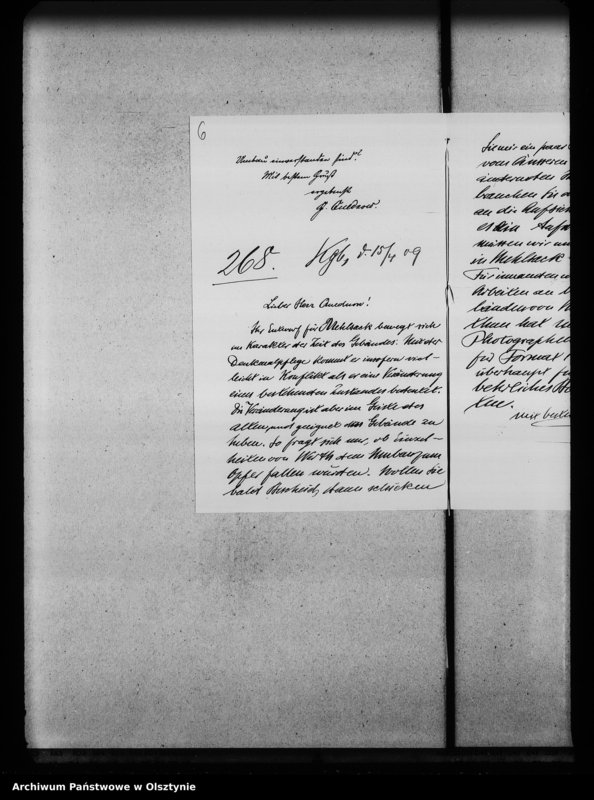 6
Umbau einverstanden sind?
Mit bestem Gruß
ergebenst
G.
268. Kgb, d. 15/4 09
Lieber Herr
Ihr Entwurf für Mehlsack bewegt sich
im Karakter der Zeit des Gebäudes. Mit der
Denkmalpflege kommt er insofern viel-
leicht in Konflikt als er eine Veränderung
eines bestehenden Zustandes bedeutet.
Die Veränderung ist aber im Geiste des
alten, und geeignet das Gebäude zu
heben. So fragt sich nur, ob Einzel-
heiten von Werth dem Umbau zum
Opfer fallen würden. Wollen Sie
bald Bescheid, dann schicken
Sie mir ein paar
vom Äusseren
brauchen Sie
an die Aufsich
es kein
müssen wir
in Mehlsack
Für
Arbeiten an
bändern von
Thun hat
Photographen
für Format
überhaupt für
mit besten
Archiwum Państwowe w Olsztynie